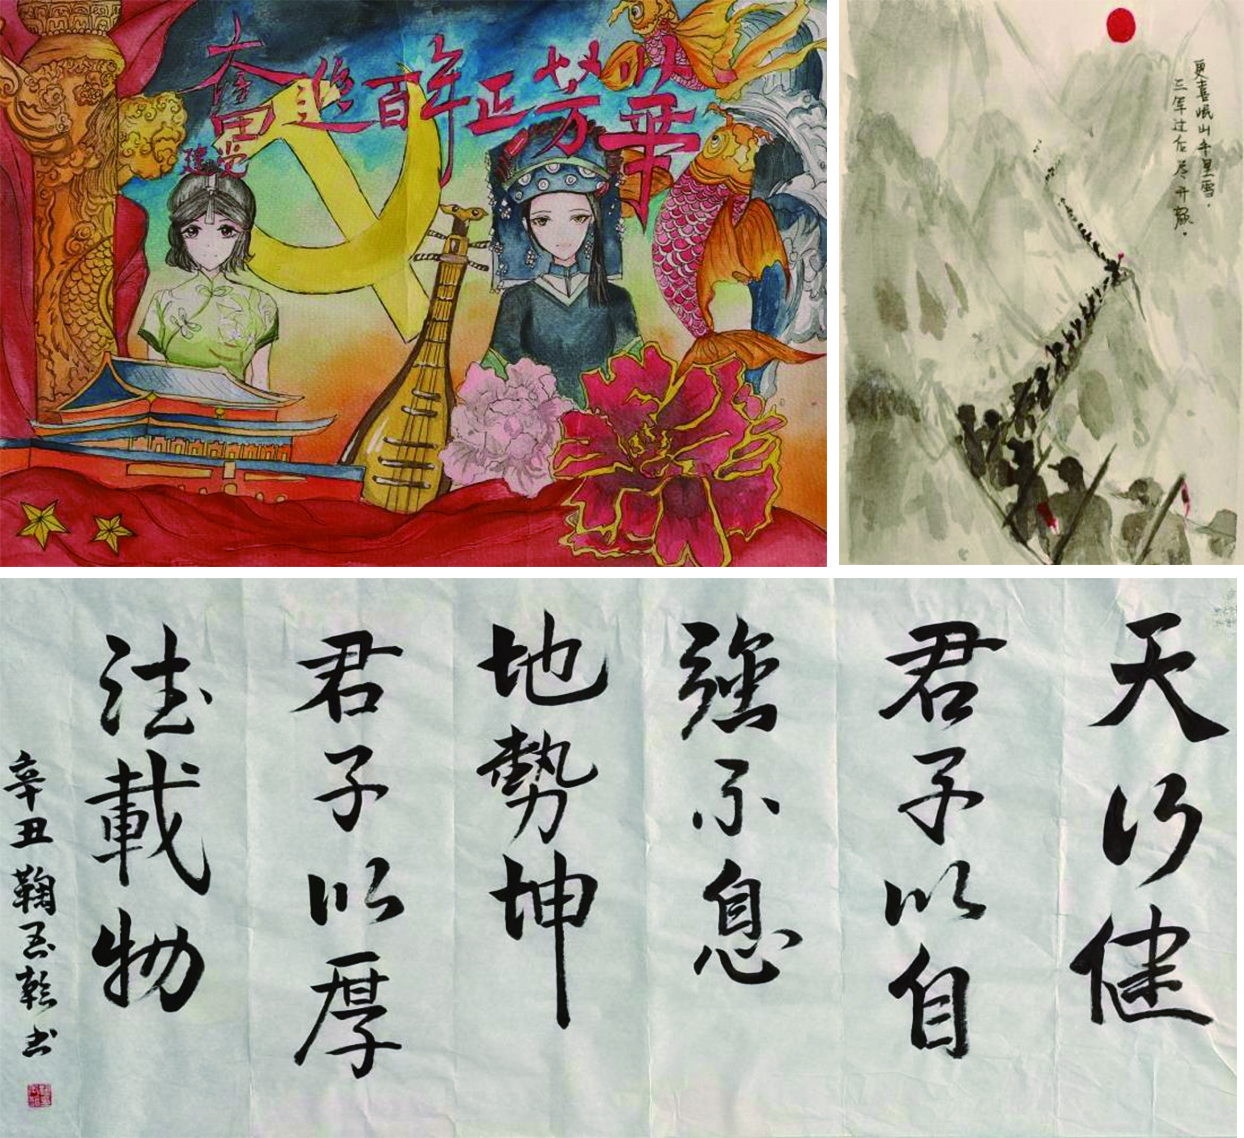 奮進百年正芳華
建党
更喜岷山千里雪。
三军过后尽开颜。
天行健
君子以自
強不息
地勢坤
君子以厚
德載物
辛丑鞠玉乾书